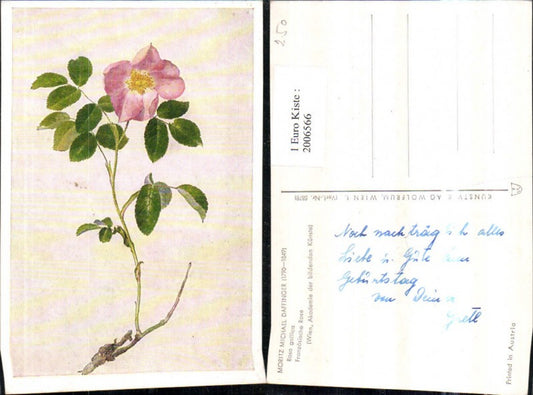 250
1 Euro Kiste :
2006566
KUNSTVERLAG WOLFRUM, WIEN I.
MORITZ MICHAEL DAFFINGER (1790—1849)
Rosa gallica
Französische Rose
(Wien, Akademie der bildenden Künste)
Noch nachträglich alles
Liebe u. Gute zum
Geburtstag
von Deiner
Grete
Printed in Austria